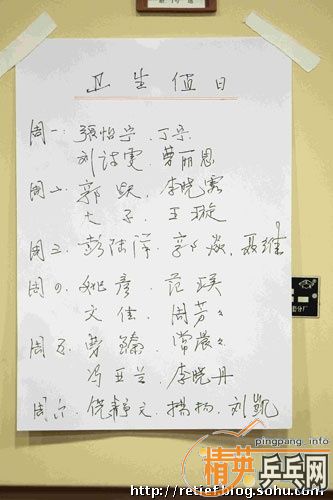 卫生值日
周一: 張怡宁. 丁宁.
刘诗雯. 曹丽思
周二: 郭跃. 李晓霞
木子. 王璇
周三: 彭陆洋. 郭焱. 聂维
周四: 姚彦. 范瑛
文佳. 周芳々
周五: 曹臻. 常晨々
冯亚兰. 李晓丹
周六: 饶静文. 杨扬. 刘凯
pingpang.info
精英乒乓网
http://retief.blog.sohu.com